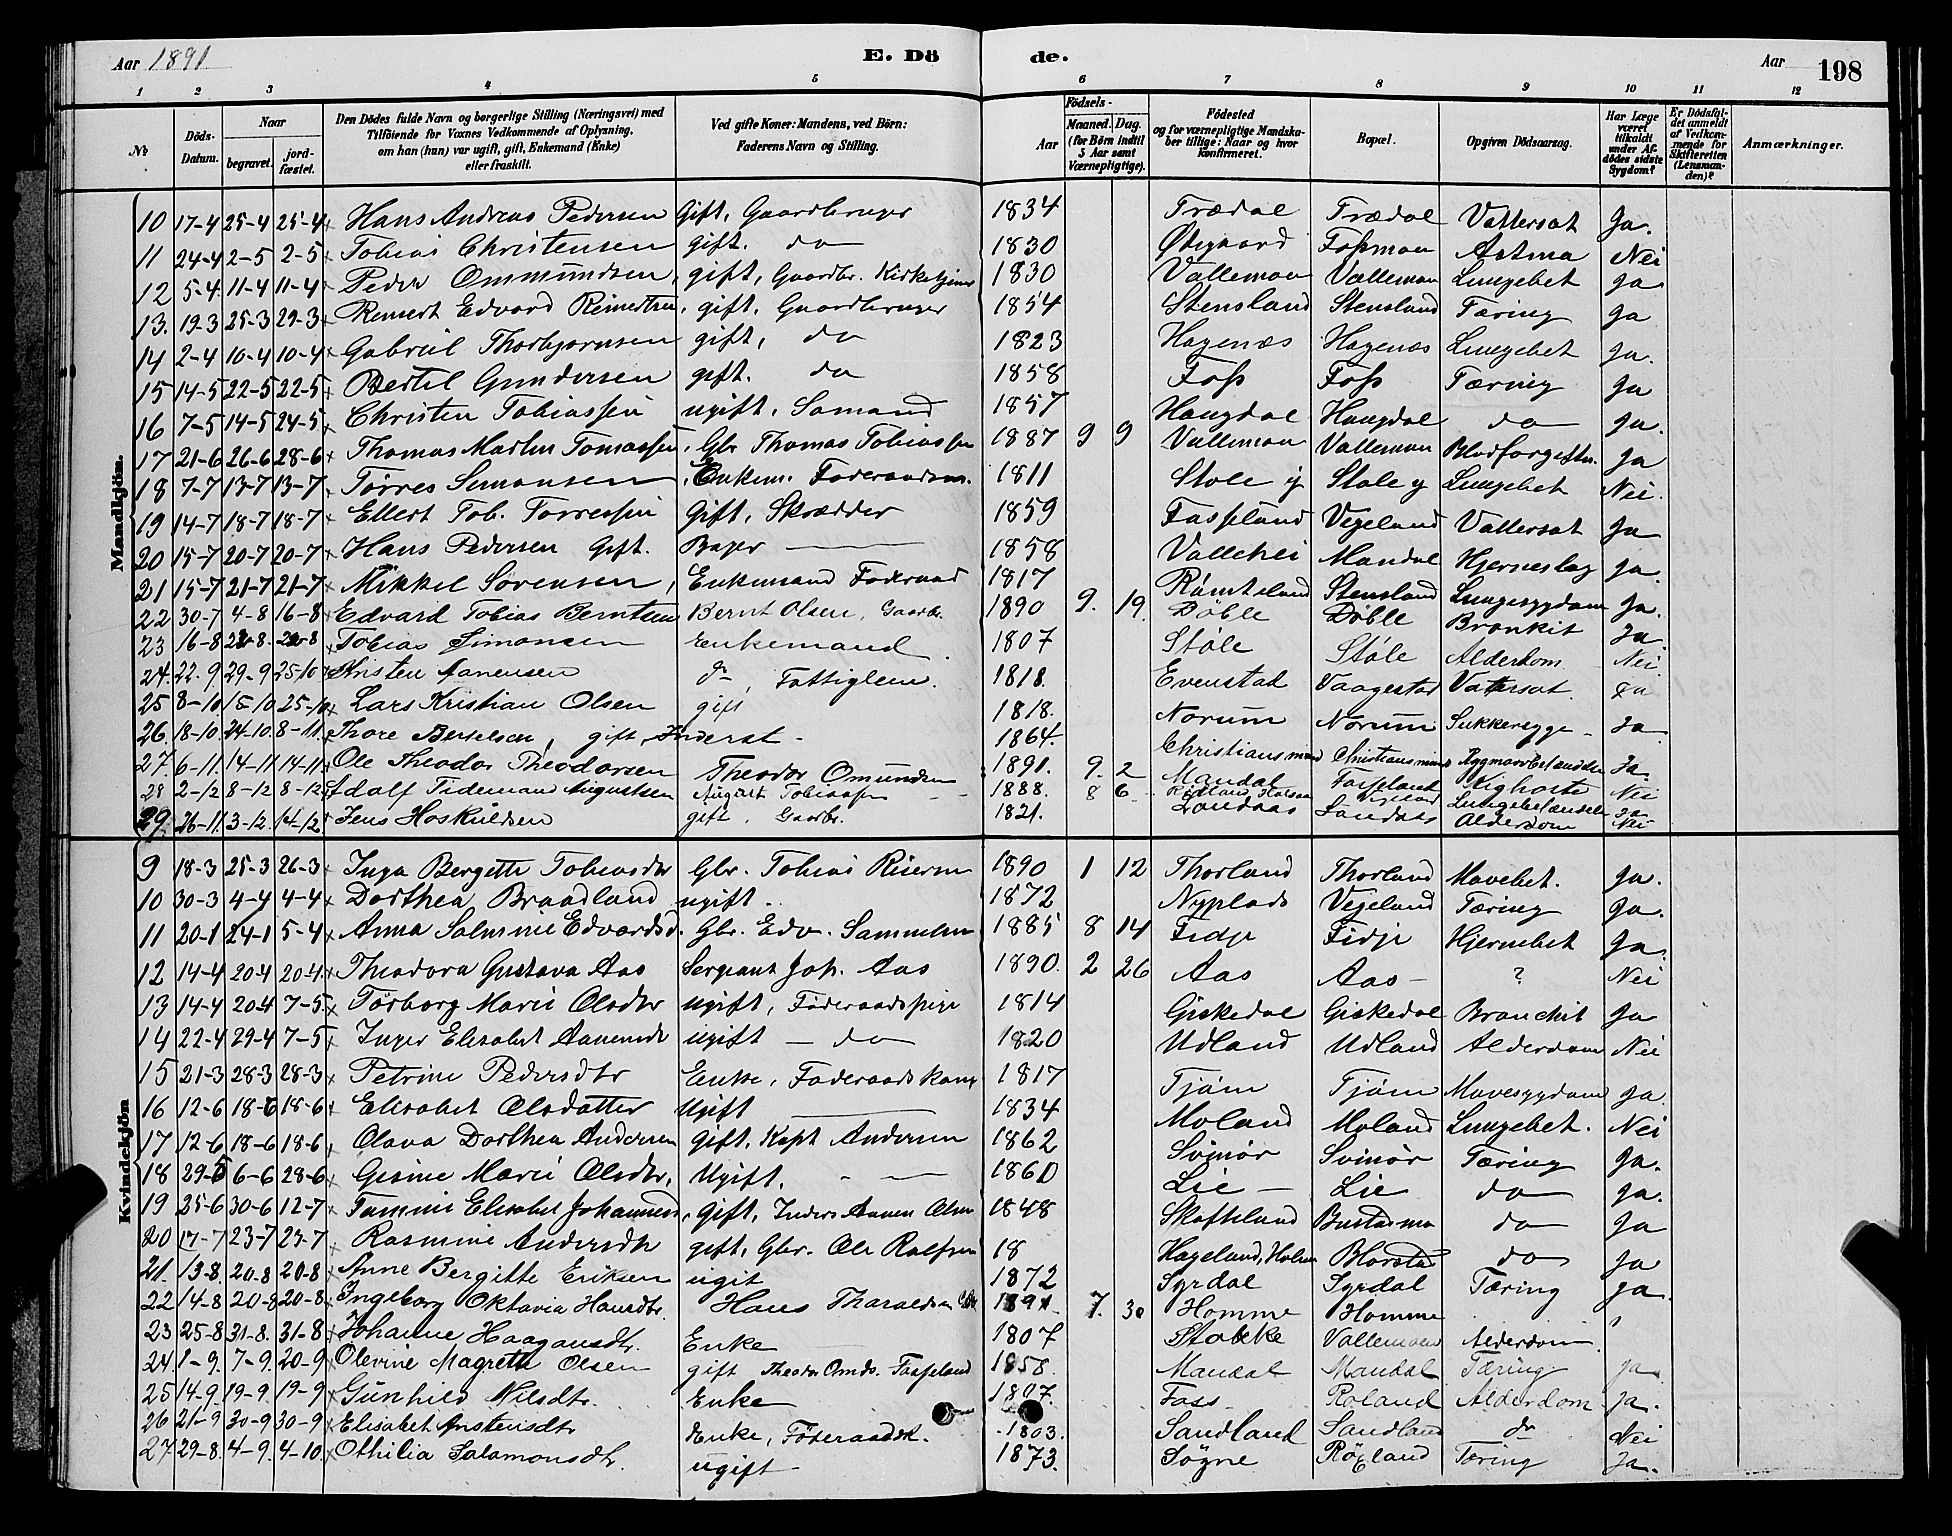 Aar 1891 E. Dö de. Aar 198
1 2 3 4 5 6 7 8 9 10 11 12
No. Döds-Datum. Naar begravet. jord-fæstet. Den Dödes fulde Navn og borgerlige Stilling (Næringsvei) med Tilföiende for Voxnes Vedkommende af Oplysning, om han (hun) var ugift, gift, Enkemand (Enke) eller fraskilt. Ved gifte Koner: Mandens, ved Börn: Faderens Navn og Stilling. Födsels- Aar Maaned. Dag. (for Börn indtil 5 Aar samt Værnepligtige). Födested og for værnepligtige Mandskaber tillige: Naar og hvor konfirmeret. Bopæl. Opgiven Dödsaarsag. Har Læge været tilkaldt under Afdödes sidste Sygdom? Er Dödsfaldet anmeldt af Vedkommende for Skifteretten (Lensmanden)? Anmærkninger.
Mandkjön.
10 17-4 25-4 25-4 Hans Andreas Pedersen Gift, Gaardbruger 1834 Trædal Trædal Vattersot Ja.
11 24-4 2-5 2-5 Tobias Christensen gift. do 1830 Ødegaard Fossmoen Astma Nei
12 5-4 11-4 11-4 Peder Ommundsen, gift, Gaardbr. Kirketjener 1830 Vallemoen Vallemoen Lungebet Ja
13. 19-3 25-3 29-3 Reinert Edvard Reinertsen, gift, Gaardbruger 1854 Stensland Stensland Tæring Ja
14 2-4 10-4 10-4 Gabriel Thorbjørnsen gift, do 1823 Hagenæs Hagenæs Lungebet Ja.
15 14-5 22-5 22-5 Bertil Gundersen gift. do 1858 Foss Foss Tæring Ja
16 7-5 14-5 24-5 Christen Tobiassen ugift, Sømand 1857 Haugdal Haugdal do Ja.
17 21-6 26-6 28-6 Thomas Martin Tomassen, Gbr Thomas Tobiassen 1887 9 9 Vallemoen Vallemoen Blodforgiftn. Ja
18 7-7 13-7 13-7 Tørres Simonsen, Enkem. Føderaadsm. 1811 Støle y Støle y Lungebet Nei.
19 14-7 18-7 18-7 Ellert Tob. Torressen Gift, Skrædder 1859 Fasseland Vegeland Vattersot Ja
20 15-7 20-7 20-7 Hans Pedersen Gift. Bager 1858 Vallehei Mandal Hjerneslag Ja.
21 15-7 21-7 21-7 Mikkel Sørensen, Enkemand Føderaad 1817 Rømteland Stensland Lungesygdom Ja.
22 30-7 4-8 16-8 Edvard Tobias Berntsen Bernt Olsen, Gaardbr. 1890 9. 19 Døble Døble Bronkit Ja
23 16-8 Tobias Simonsen Enkemand 1807 Støle Støle Alderdom Nei
24. 22-9 29-9 25-10 Aanensen do, Fattiglem. 1818 Evenstad Vaagestad Vatersot. Ja
25 8-10 15-10 25-10 Lars Kristian Olsen gift 1818. Norum Norum Sukkersyge Ja
26. 18-10. 24-10. 8-11. Thore Bertelsen, gift, Inderst 1864.
27. 6-11. 14-11 14-11 Ole Theodor Theodorsen Theodor Omundsen 1891. 9. 2 Mandal Ja.
28 2-12 8-12 8-12 Adolf Tidemand Augustsen August Tobiassen 1888. 8 6 Kighoste Nei
29. 26-11. 3-12. 14-12 Jens Hoskuldsen gift. Gaardbr. 1821. Landaas Landaas Alderdom Nei
Kvindekjön
9 18-3 25-3 26-3 Inga Bergette Tobiasdtr Gbr. Tobias Risernen 1890 1 12 Thorland Thorland Mavebet. Ja.
10 30-3 4-4 4-4 Dorthea Braadland ugift 1872 Nyplads Vegeland Tæring Ja.
11 20-1 24-1 5-4 Anna Salmine Edvardsd. Gbr. Edv. Samuelsen 1885 8 14 Fidje Fidje Hjernebet Ja
12 14-4 20-4 20-4 Theodora Gustava Aas Sergeant Joh. Aas 1890. 2 26 Aas Aas ? Nei
13 14-4 20-4 7-5 Torborg Marie Olsdtr ugift, Føderaadspige 1814 Giskedal Giskedal Bronchit Ja
14 22-4 29-4 7-5 Inger Elisabet Aanensdt ugift do 1820 Udland Udland Alderdom Nei
15 21-3 28-3 28-3 Petrine Pedersdtr Enke, Føderaadskone 1817 Tjøm Tjøm Mavesygdom Ja.
16 12-6 18-6 18-6 Elisabet Olsdatter Ugift 1834 Moland Moland Lungebet. Nei
17 12-6 18-6 18-6 Olava Dorthea Andersen gift, Kapt Andersen 1862 Svinør Svinør Tæring Ja.
18 29-5 6-6 28-6 Gesine Marie Olsdtr, Ugift. 1860 Lie Lie do Ja.
19 25-6 30-6 12-7 Tammine Elisabet Johannesd, Gift, Inders Aanen Olsen 1848 Skofteland Bustadmo do Ja
20 17-7 23-7 23-7 Rasmine Andersdtr gift, Gbr. Ole Rolfsen 18 Hageland, Holum Blørstad do Ja
21. 13-8. 20-8 20-8 Anne Bergitte Eriksen ugit 1872 Syrdal Syrdal Tæring Ja.
22 14-8 20-8 20-8 Ingeborg Oktavia Hansdtr. Hans Tharaldsen 1891. 7. 30 Homme Homme
23 25-8 31-8. 31-8 Johanne Haagansdt. Enke 1807 Stokke Vallemoen Alderdom
24. 1-9. 7-9. 20-9 Olevine Magrethe Olsen gift Theodor Omds. Fasseland 1858. Mandal Mandal Tæring Ja
25 14-9. 19-9. 19-9 Gunhild Nilsdt. Enke 1807. Foss Roland Alderdom Ja.
26 21-9 30-9 30-9 Elisabet Anstensdt Enke, Føderaadsk. 1803. Sandland Sandland do Nei
27 29-8. 4-9. 4-10. Othilia Salamonsdt. ugift 1873. Søgne Røyland Tæring Ja.